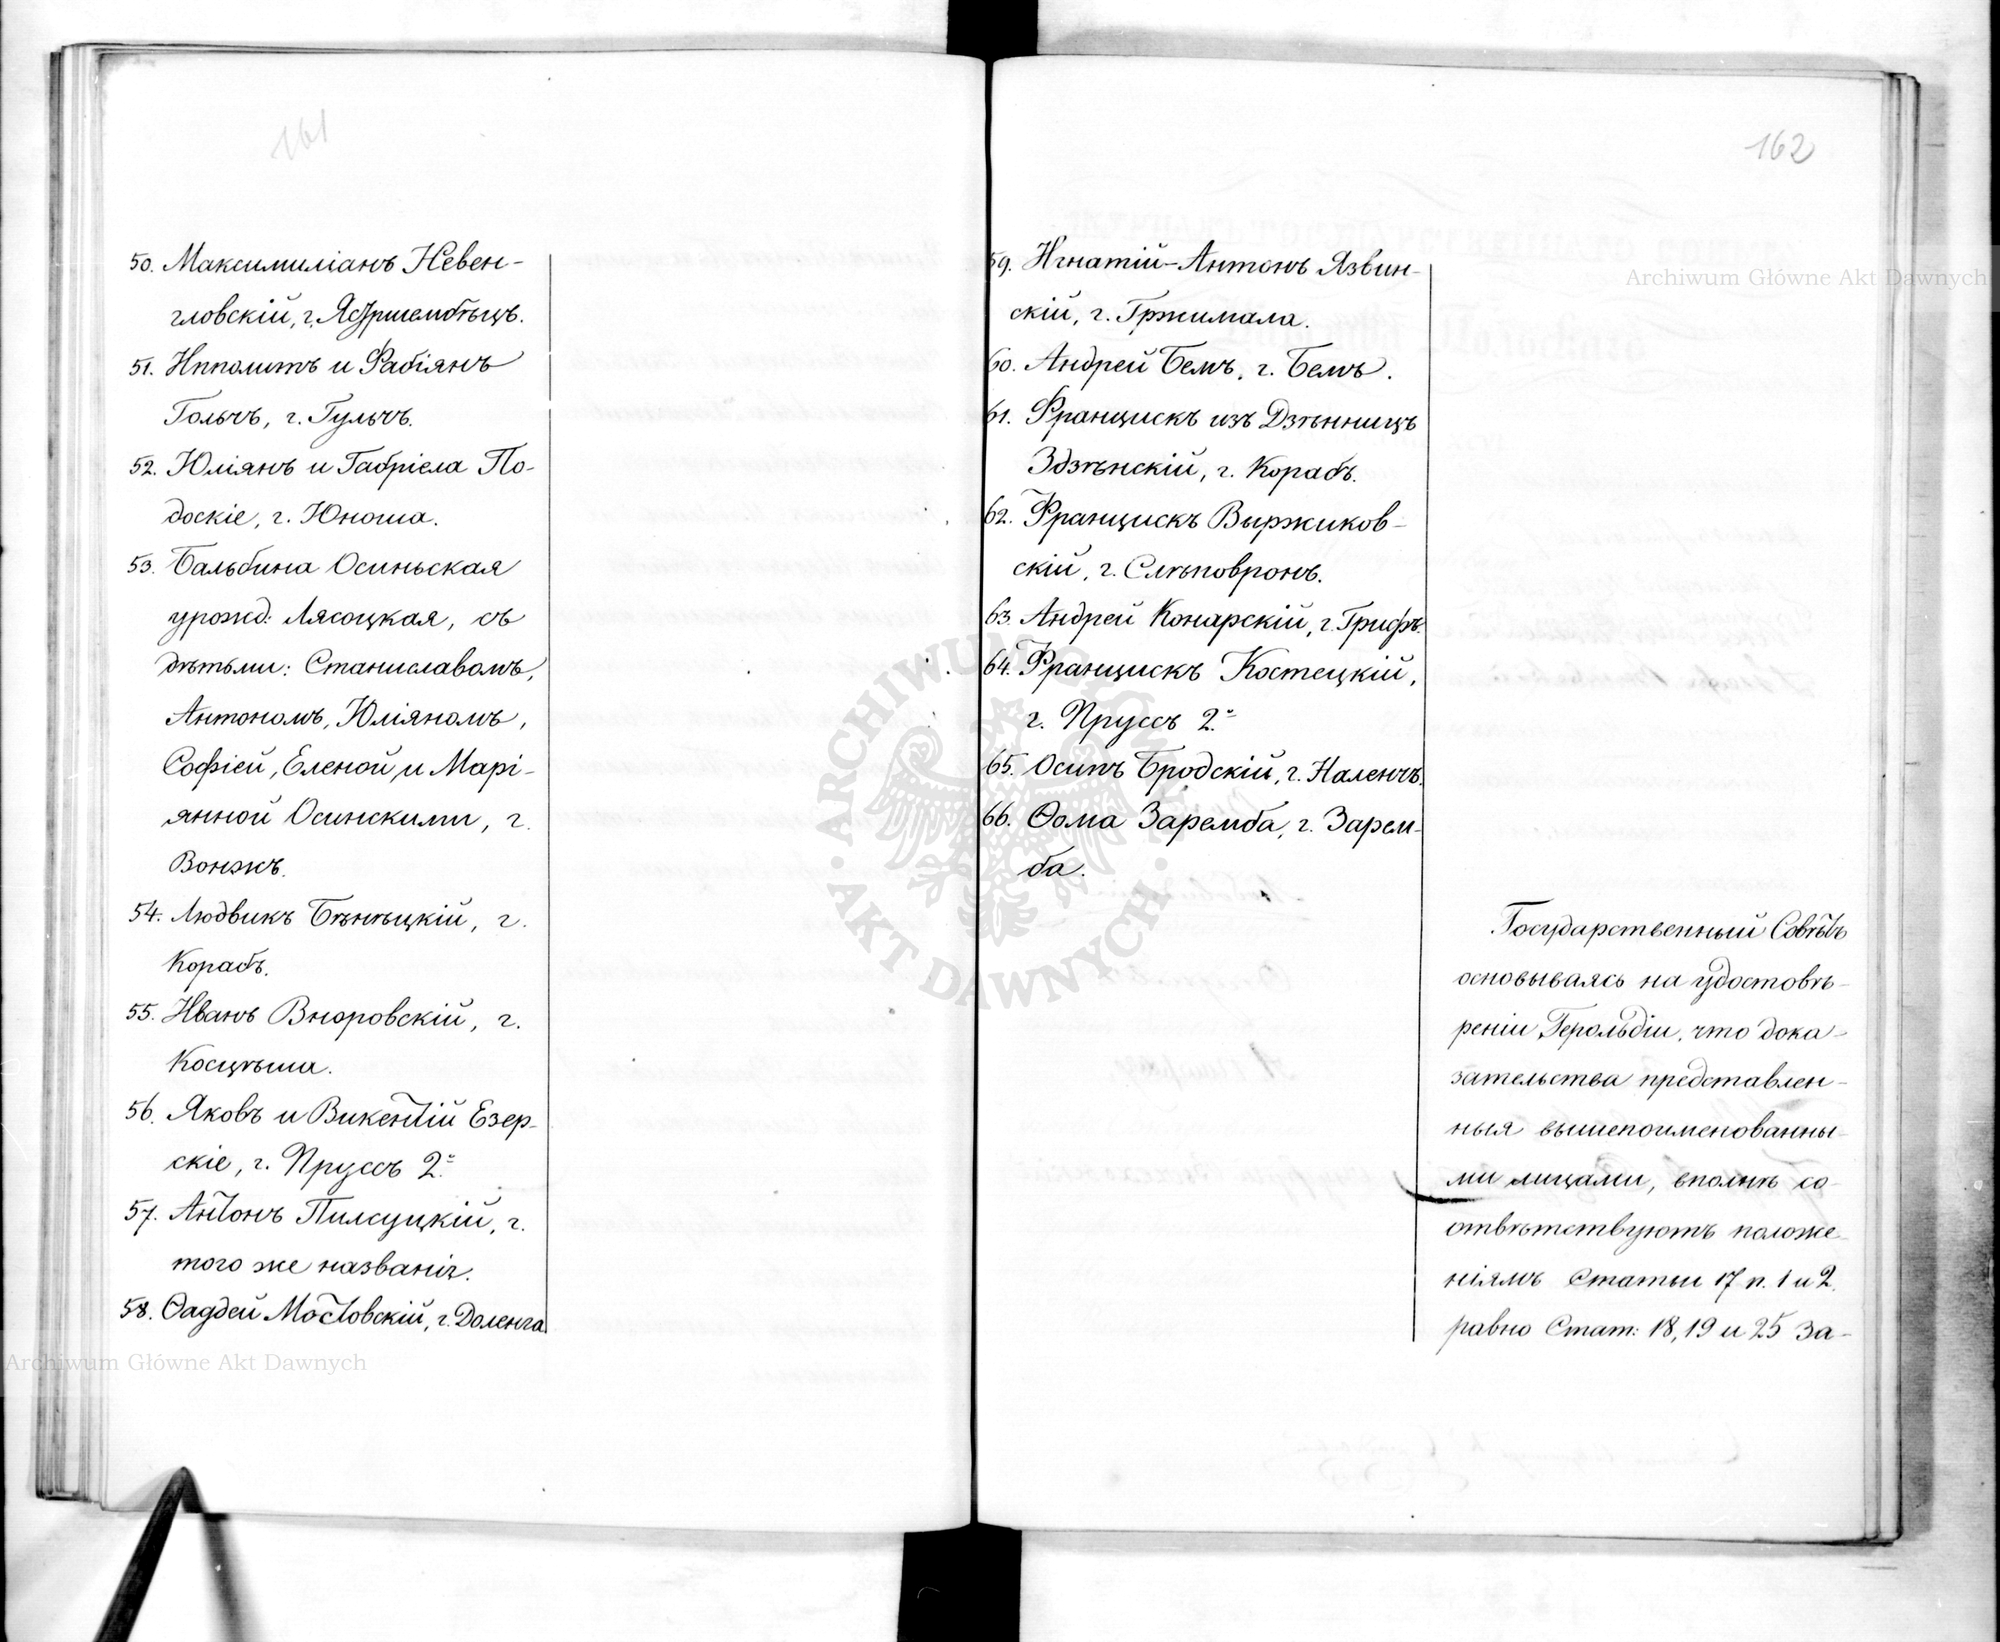 161
50. Максимиліанъ Невен-
гловскій, г. Ястршембѣцъ.
51. Ипполитъ и Фабіянъ
Гольчъ, г. Гульчъ.
52. Юліянъ и Габріела По-
доскіе, г. Юноша.
53. Бальбина Осиньская
урожд: Лясоцкая, съ
дѣтьми: Станиславомъ,
Антономъ, Юліяномъ,
Софіей, Еленой и Марі-
янной Осинскими, г.
Вонжъ.
54. Людвикъ Бѣнѣцкій, г.
Корабъ.
55. Иванъ Вноровскій, г.
Косцѣша.
56. Яковъ и Викентій Езер-
скіе, г. Пруссъ 2º
57. Антонъ Пилсуцкій, г.
того же названія.
58. Ѳаддей Мостовскій, г. Доленга
Archiwum Główne Akt Dawnych
162
59. Игнатій-Антонъ Язвин-
скій, г. Гржимала.
60. Андрей Бемъ, г. Бемъ.
61. Францискъ изъ Дзѣнницъ
Здзѣнскій, г. Корабъ.
62. Францискъ Выржиков-
скій, г. Слѣповронъ.
63. Андрей Конарскій, г. Грифъ.
64. Францискъ Костецкій,
г. Пруссъ 2º
65. Осипъ Бродскій, г. Наленчъ.
66. Ѳома Заремба, г. Зарем-
ба.
Государственный Совѣтъ
основываясь на удостовѣ-
реніи Герольдіи, что дока-
зательства представлен-
ныя вышепоименованны-
ми лицами, вполнѣ со-
отвѣтствуютъ положе-
ніямъ Статьи 17 п. 1 и 2.
равно Стат: 18, 19 и 25 За-
Archiwum Główne Akt Dawnych
ARCHIWUM GŁÓWNE AKT DAWNYCH